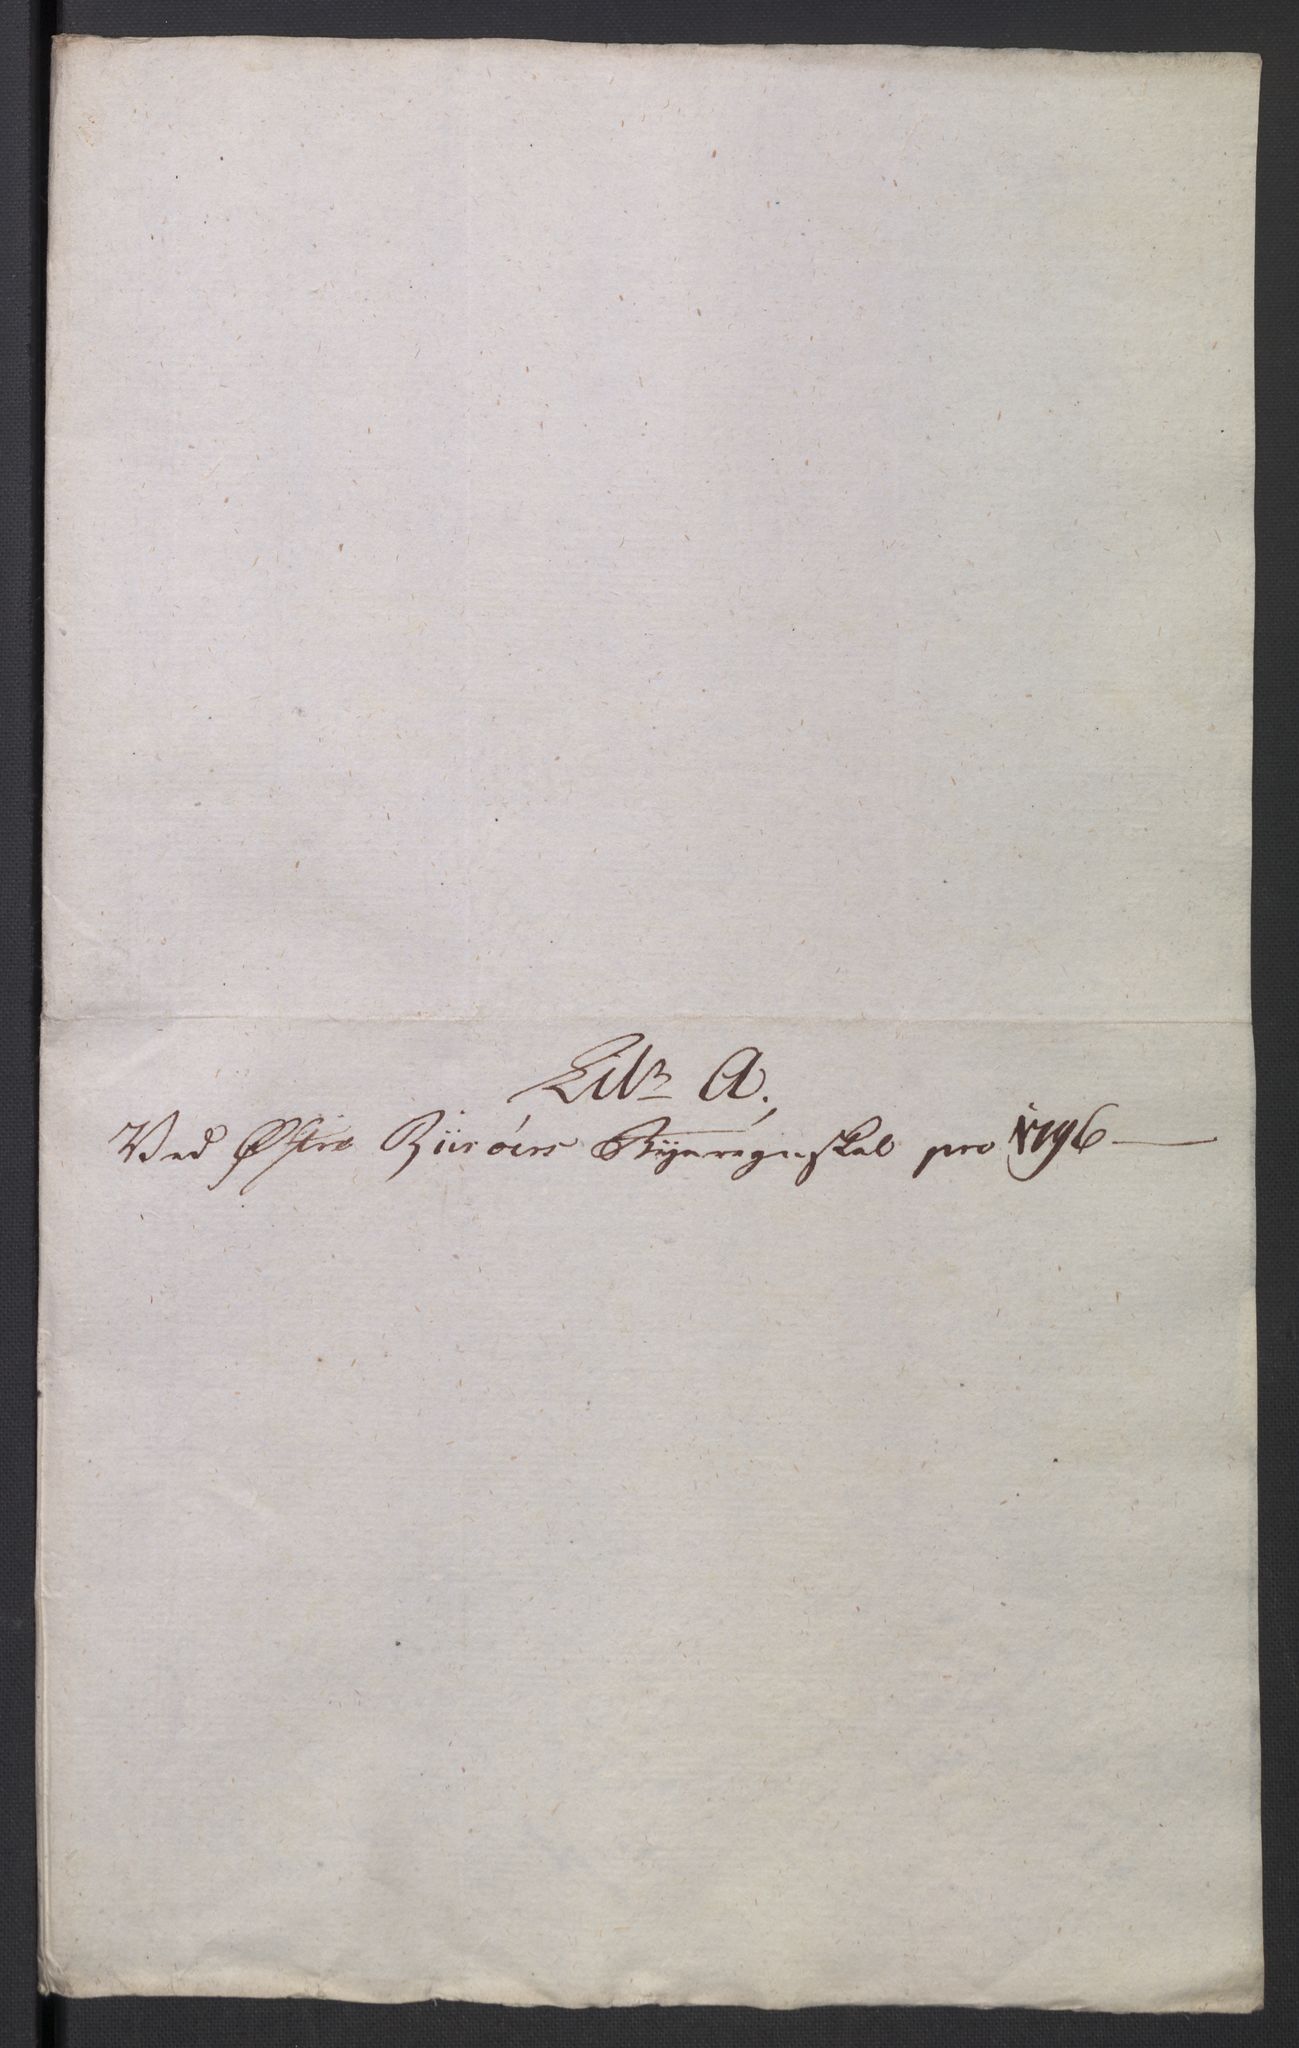 Litr A.
Ved Østre Riisöers Byeregnskab pro 1796